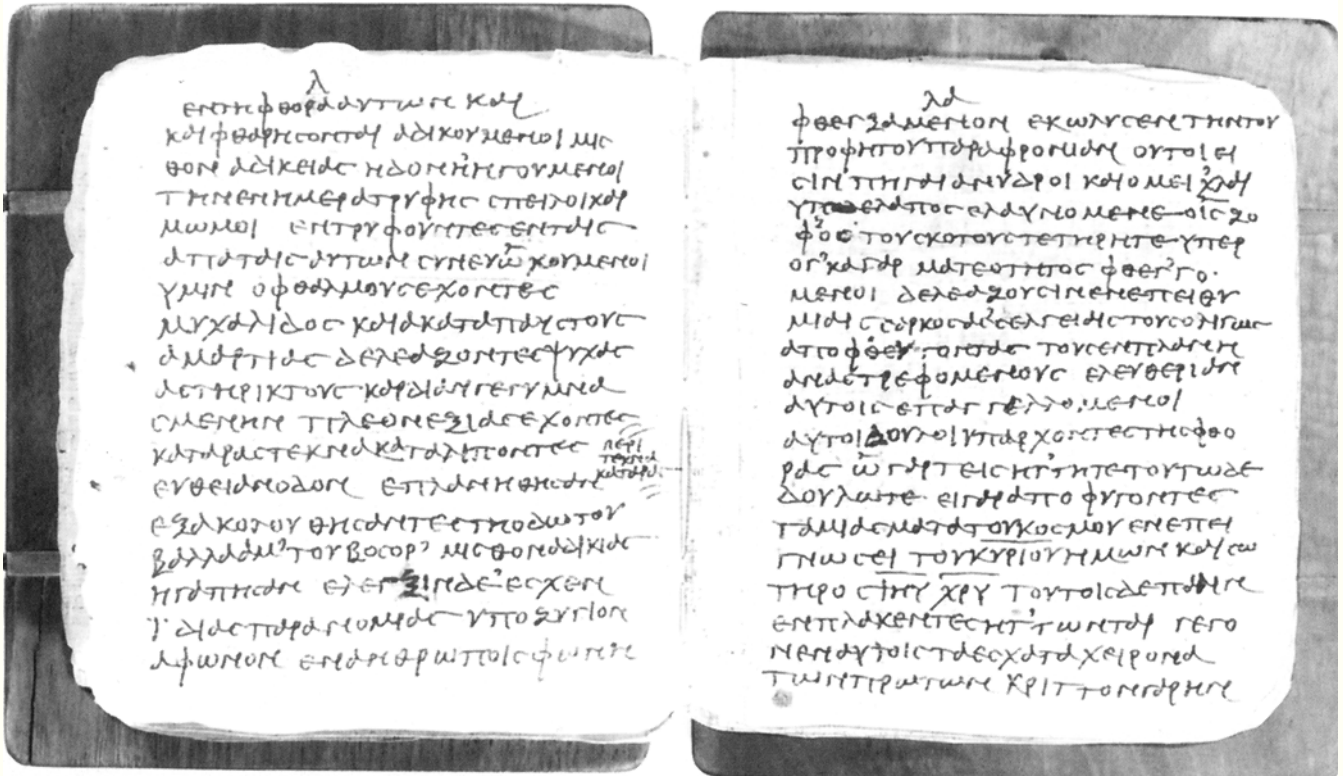 λ
εν τη φθορα αυτων και
και φθαρησονται αδικουμενοι μισ
θον αδικειας ηδονην ηγουμενοι
την εν ημερα τρυφης σπειλοι και
μωμοι εντρυφουντες εν ταις
απαταις αυτων συνευωχουμενοι
υμιν οφθαλμους εχοντες
μυχαλιδος και ακαταπαυστους
αμαρτιας δελεαζοντες ψυχας
αστηρικτους καρδιαν γεγυμνα
σμενην πλεονεξιας εχοντες
καταρας τεκνα καταλιποντες
περι
τεκνα
καταρας
ευθειαν οδον επλανηθησαν
εξακολουθησαντες τη οδω του
βαλλααμ του βοσορ μισθον αδικιας
ηγαπησαν ελεγξιν δε εσχεν
ϊδιας παρανομιας υποζυγιον
αφωνον εν ανθρωποις φωνη
λα
φθεγξαμενον εκωλυσεν την του
προφητου παραφρονιαν ουτοι ει
σιν πηγαι ανυδροι και ομειχλαι
υπο λελαπος ελαυνομενε οις ζο
φος του σκοτους τετηρητε υπερ
ογκα γαρ ματεοτητος φθεγγο
μενοι δελεαζουσιν εν επειθυ
μιαις σαρκος ασελγειαις τους ολιγως
τους εν πλανη
αναστρεφομενους ελευθεριαν
αυτοις επαγγελλομενοι
αυτοι δουλοι υπαρχοντες της φθο
ρας ω γαρ τεις ηττητε τουτω δε
δουλωτε ει γαρ αποφυγοντες
τα μιασματα του κοσμου εν επει
γνωσει του κυριου ημων και σω
τηρος ιηυ χρυ τουτοις δε παλιν
ενπλακεντες ηττωνται γεγο
νεν αυτοις τα εσχατα χειρονα
των πρωτων κριττον γαρ ην